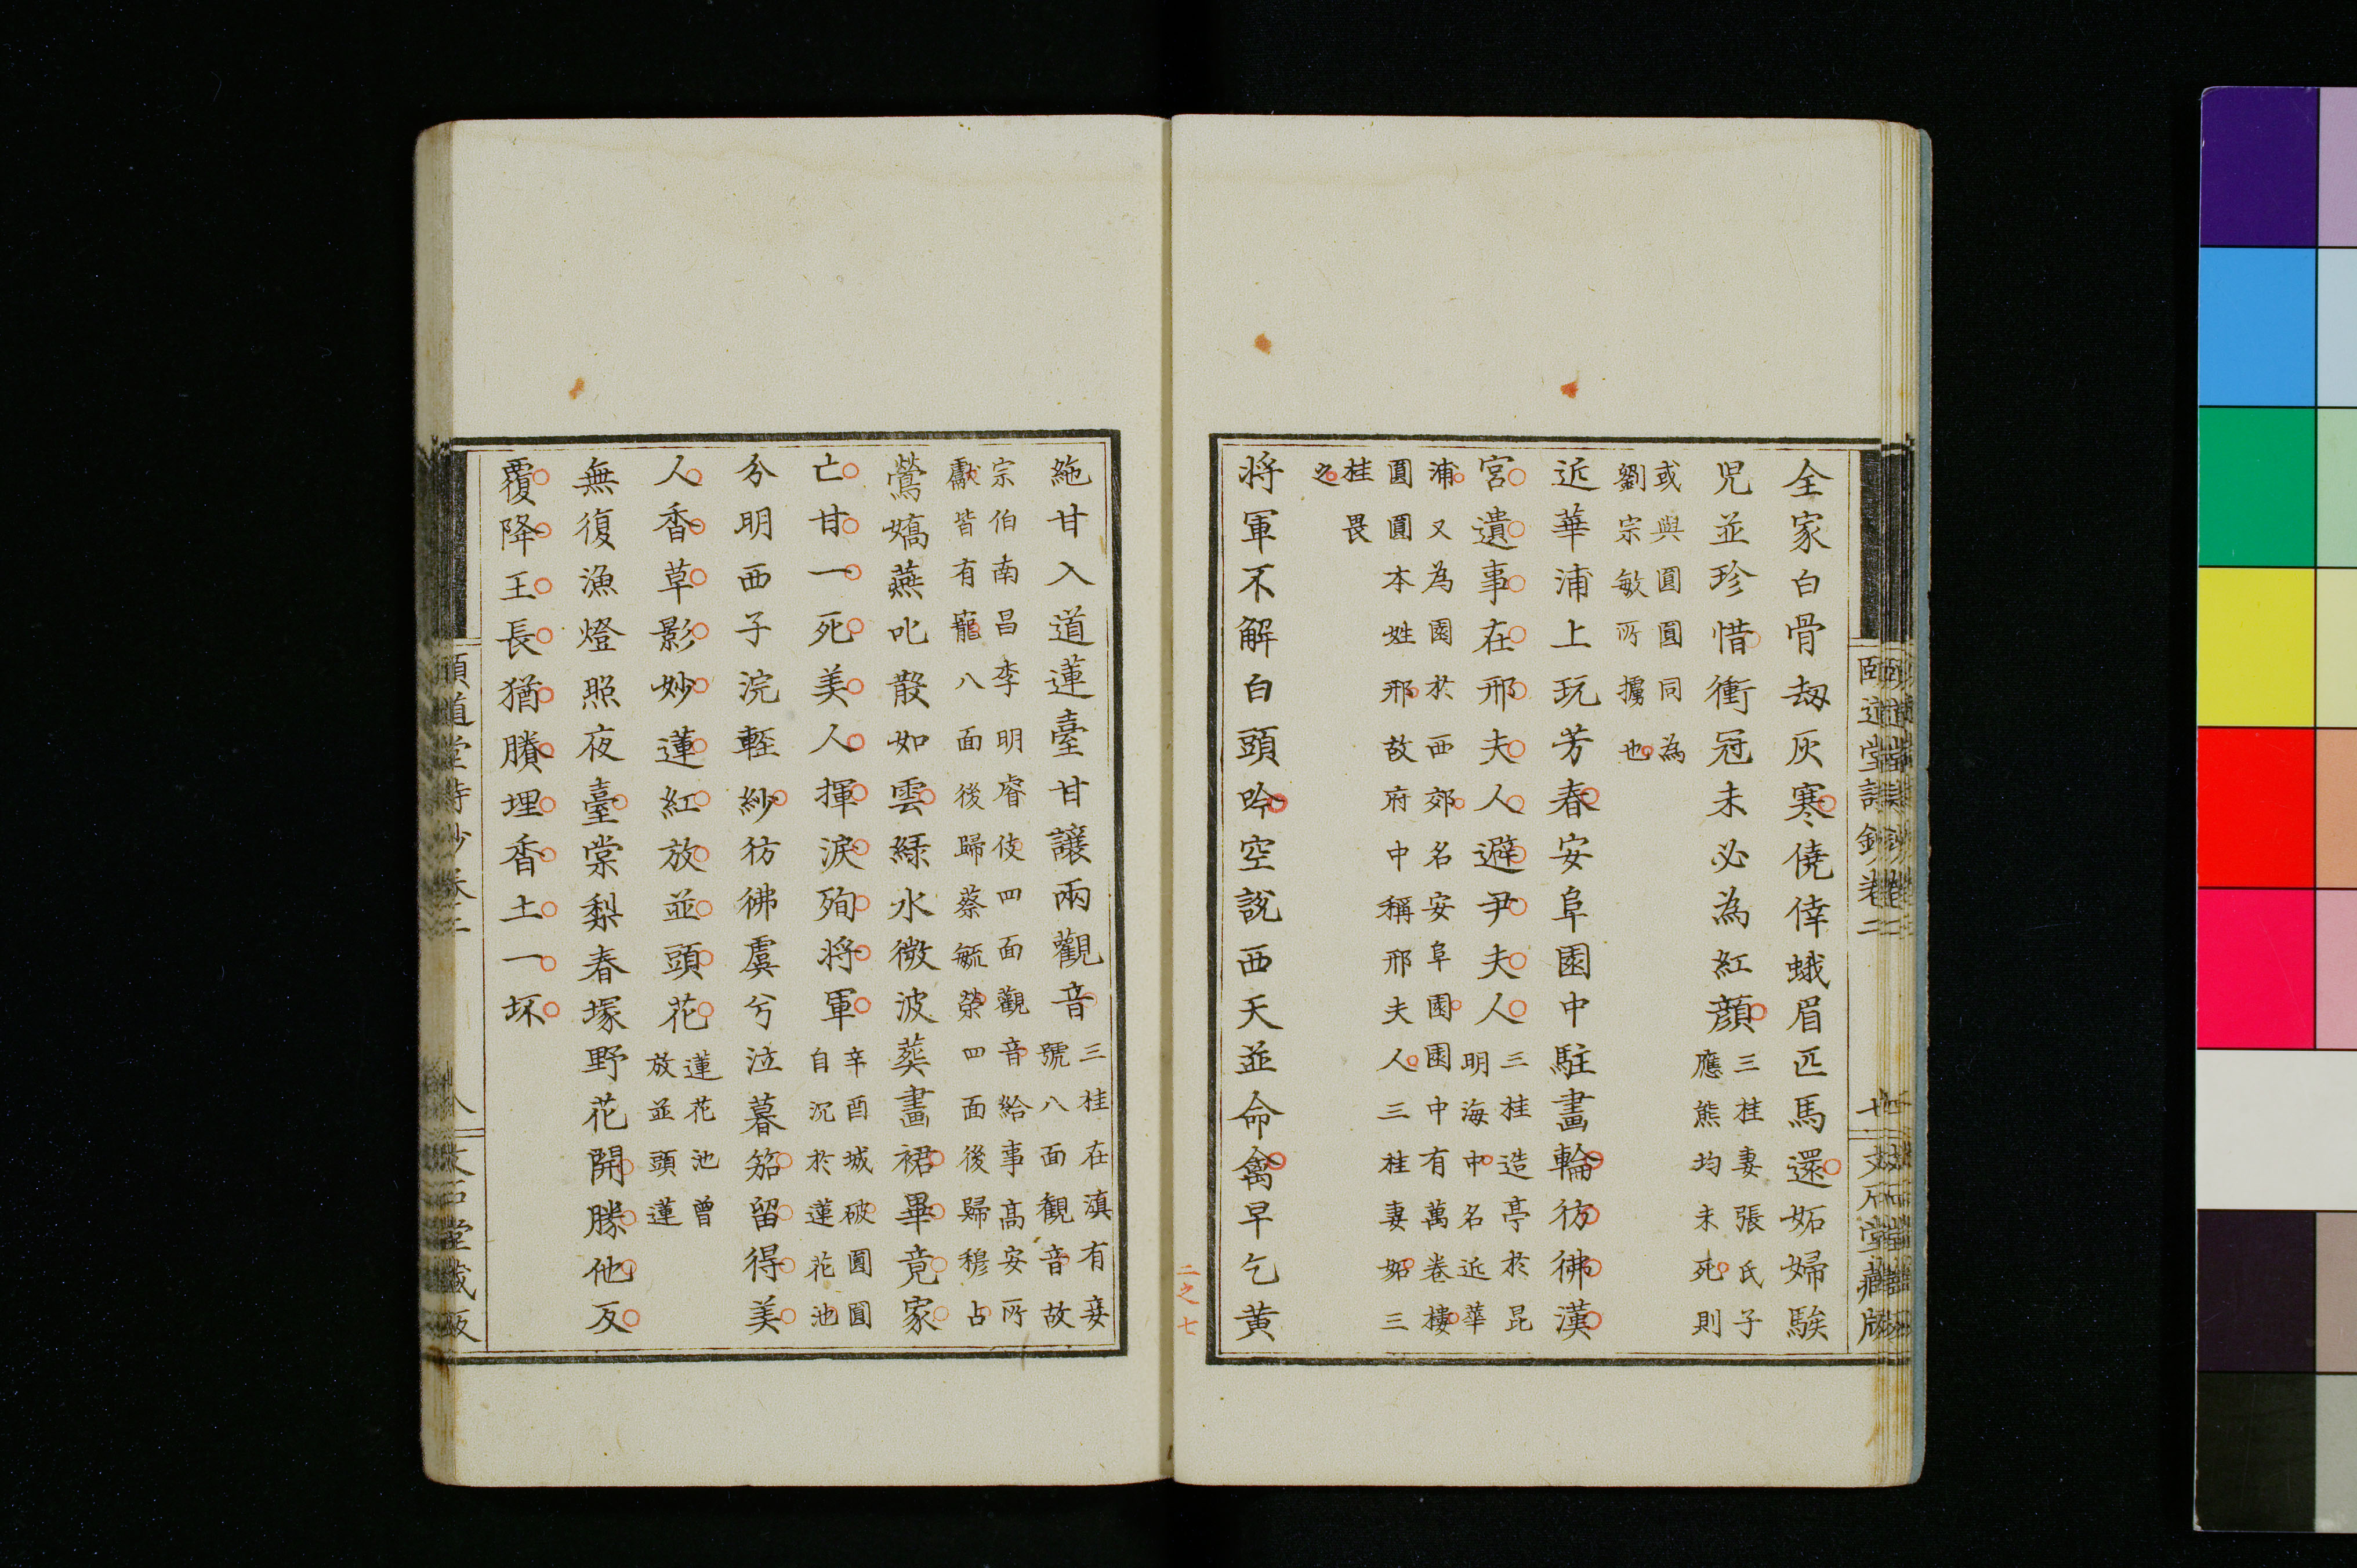 頤道堂詩鈔卷二
文石堂藏版
全家白骨劫灰寒僥倖蛾眉匹馬還妬婦騃
児並珍惜衝冠未必為紅顔
三桂妻張氏子
應熊均未死則
或與圓圓同為
劉宗敏所擄也
近華浦上玩芳春安阜園中駐畫輪彷彿漢
宮遺事在邢夫人避尹夫人
三桂造亭於昆
明海中名近華
浦又為園於西郊名安阜園園中有萬卷樓
圓圓本姓邢故府中稱邢夫人三桂妻妬三
桂畏
之
将軍不解白頭吟空說西天並命禽早乞黄
二之七
絁甘入道蓮臺甘讓兩觀音
三桂在滇有妾
號八面観音故
宗伯南昌李明睿伎四面觀音給事高安所
獻皆有寵八面後歸蔡毓榮四面後歸穆占
鶯嬌燕叱散如雲緑水微波葬畫裙畢竟家
亡甘一死美人揮淚殉将軍
辛酉城破圓圓
自沉於蓮花池
分明西子浣輕紗彷彿虞兮泣暮笳留得美
人香草影妙蓮紅放並頭花
蓮花池曾
放並頭蓮
無復漁燈照夜臺棠梨春塚野花開勝他反
覆降王長猶賸埋香土一坏
頤道堂詩鈔卷二
八
文石堂藏版